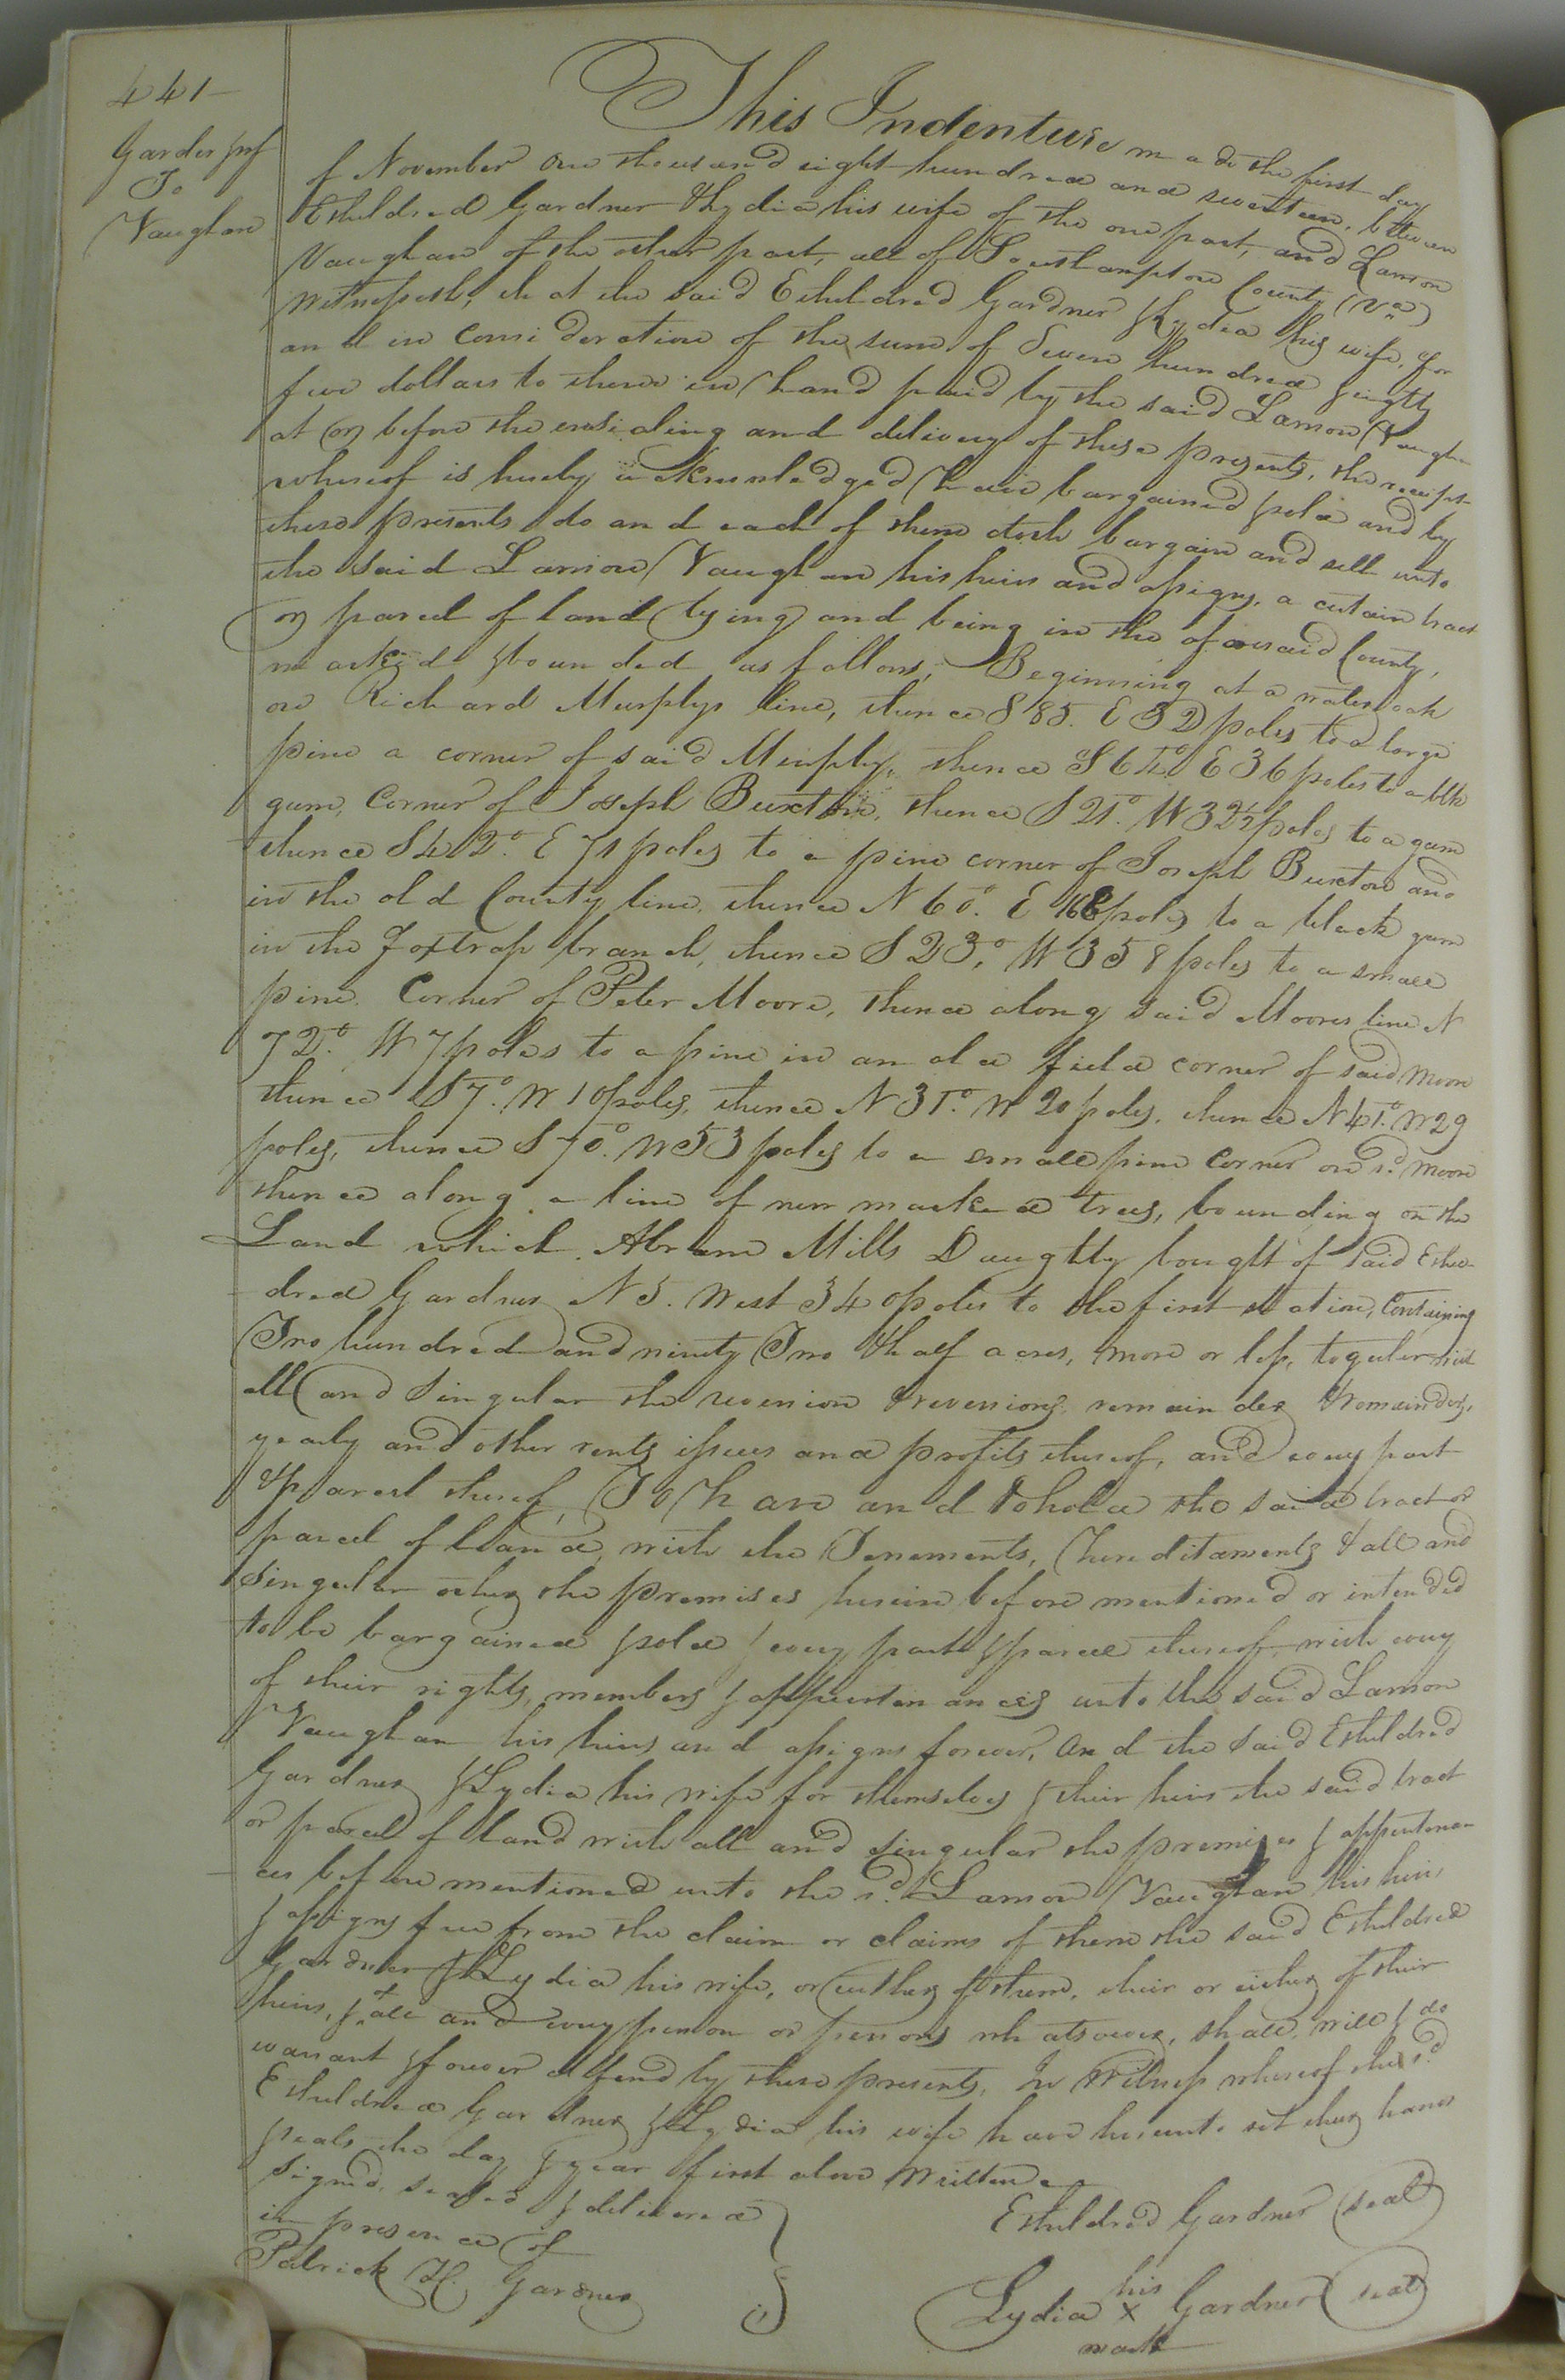 441
Gardner &wf
To
Vaughan
This Indenture made the first day
of November One thousand eight hundred and seventeen, between
Etheldred Gardner & Lydia his wife of the one part, and Lamon
Vaughan of the other part, all of Southampton County (Va)
Witnesseth, that the said Etheldred Gardner & Lydia his wife, for
and in consideration of the sum of Seven hundred & eighty
five dollars to them in hand paid by the said Lamon Vaughan
at or before the ensealing and delivery of these presents, the receipt
whereof is hereby acknowledged have bargained & sold and by
these presents do and each of them doth bargain and sell unto
the said Lamon Vaughan his heirs and assigns, a certain tract
or parcel of land lying and being in the aforesaid County,
marked & bounded as follows, Beginning at a water oak
on Richard Murphys line, thence S 85. E 32 poles to a large
pine a corner of said Murphy, thence S 61° E 36 poles to a blk
gum, Corner of Joseph Buxton, thence S 21°. W 32½ poles to a gum
thence S 42°. E 71 poles to a pine corner of Joseph Buxton and
in the old County line, thence N 60°. E 168 poles to a black gum
in the Foxtrap branch, thence S 23°. W 358 poles to a small
pine. Corner of Peter Moore, thence along said Moores line N
72°. W 7 poles to a pine in an old field corner of said Moore
thence S 7°. W 10 poles, thence N 31°. W 20 poles, thence N 41°. W 29
poles, thence S 70°. W 53 poles to a small pine Corner on sd. Moore
thence along a line of new marked trees, bounding on the
Land which Abram Mills Daughtry bought of said Ethel-
dred Gardner N 5. West 340 poles to the first station, Containing
Two hundred and ninety Two & half acres, more or less, together with
all and Singular the reversion & reversions, remainder & remainders,
yearly and other rents issues and profits thereof, and every part
& parcel thereof, To Have and to hold the said tract or
parcel of land, with the Tenements, Hereditaments & all and
Singular other the premises herein before mentioned or intended
to be bargained & sold & every part & parcel thereof, with every
of their rights, members & appurtenances unto the said Lamon
Vaughan his heirs and assigns forever, And the said Etheldred
Gardner & Lydia his wife for themselves & their heirs the said tract
or parcel of land with all and Singular the premises & appurtenan-
ces before mentioned unto the sd. Lamon Vaughan his heirs
& assigns free from the claim or claims of them the said Etheldred
Gardner & Lydia his wife, or either of them, their or either of their
heirs, & all and every person or persons whatsoever, shall, will & do
warrant & forever defend by these presents, In Witness whereof the sd.
Etheldred Gardner & Lydia his wife have hereunto set their hands
& seals the day & year first above Written
Signed, sealed & delivered
in presence of
Patrick H. Gardner
Etheldred Gardner (seal)
his
Lydia X Gardner (seal)
mark